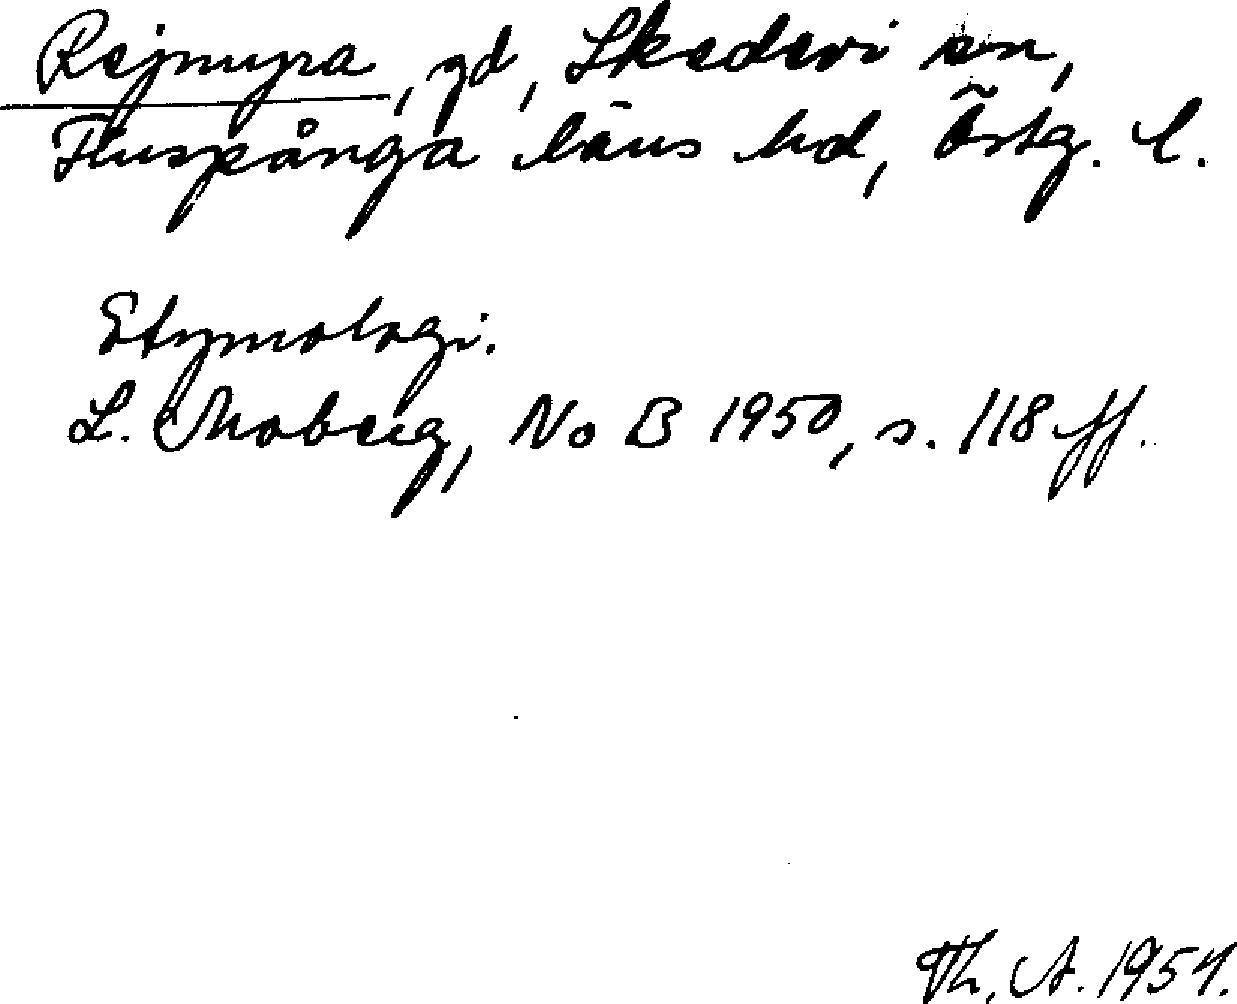 Rejmyra, gd, Skedevi sn,
Finspånga läns hd, Östg. l.
Etymologi.
L. Moberg, NoB 1950, s. 118 ff.
Th. A. 1954.